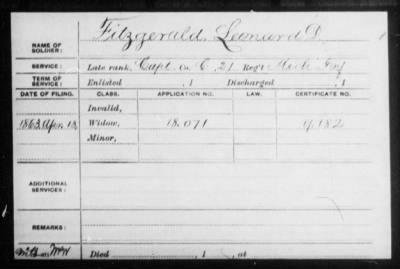 NAME OF SOLDIER: Fitzgerald, Leonard G.
SERVICE: Late rank, Capt. Co. C, 21 Reg't Mich Inf
TERM OF SERVICE: Enlisted , 1 Discharged , 1
DATE OF FILING. CLASS. APPLICATION NO. LAW. CERTIFICATE NO.
Invalid,
1863 Apr. 13, Widow, 18.071 9.182
Minor,
ADDITIONAL SERVICES:
REMARKS:
Died , 1 , at